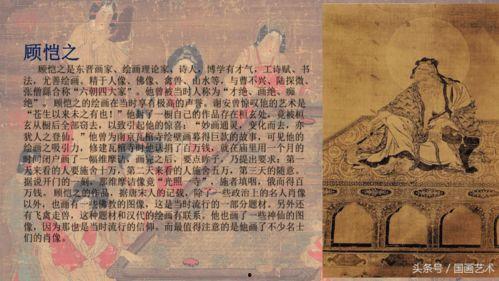 顾恺之
顾恺之是东晋画家、绘画理论家，诗人，博学有才气，工诗赋、书
法，尤善绘画。精于人像、佛像、禽兽、山水等，与曹不兴、陆探微、
张僧繇合称“六朝四大家”。他曾被当时人称为“才绝、画绝、痴
绝”。顾恺之的绘画在当时享有极高的声誉。谢安曾惊叹他的艺术是
“苍生以来未之有也！”他封了一橱自己的作品存在桓玄处，竟被桓
玄从橱后全部窃去，以致引起他的惊喜：“妙画通灵，变化而去，亦
犹人之登仙。”他曾为南京瓦棺寺绘壁画募得巨款的故事，可见他的
绘画之吸引力，修建瓦棺寺时他认捐了百万钱，就在庙里用一个月的
时间闭户画了一幅维摩诘，画完之后，要点眸子，乃提出要求：第一
天来看的人要施舍十万，第二天来看的人施舍五万，第三天的随意。
据说开门的一刻，那维摩诘像竟“光照一寺”，施者填咽，俄而得百
万钱。顾恺之的作品，据唐宋人的记载，除了一些政治上的名人肖像
以外，也画有一些佛教的图像，这是当时流行的一部分题材。另外还
有飞禽走兽，这种题材和汉代的绘画有联系，他也画了一些神仙的图
像，因为那也是当时流行的信仰，而最值得注意的是他画了不少名士
们的肖像。
头条号 / 国画艺术